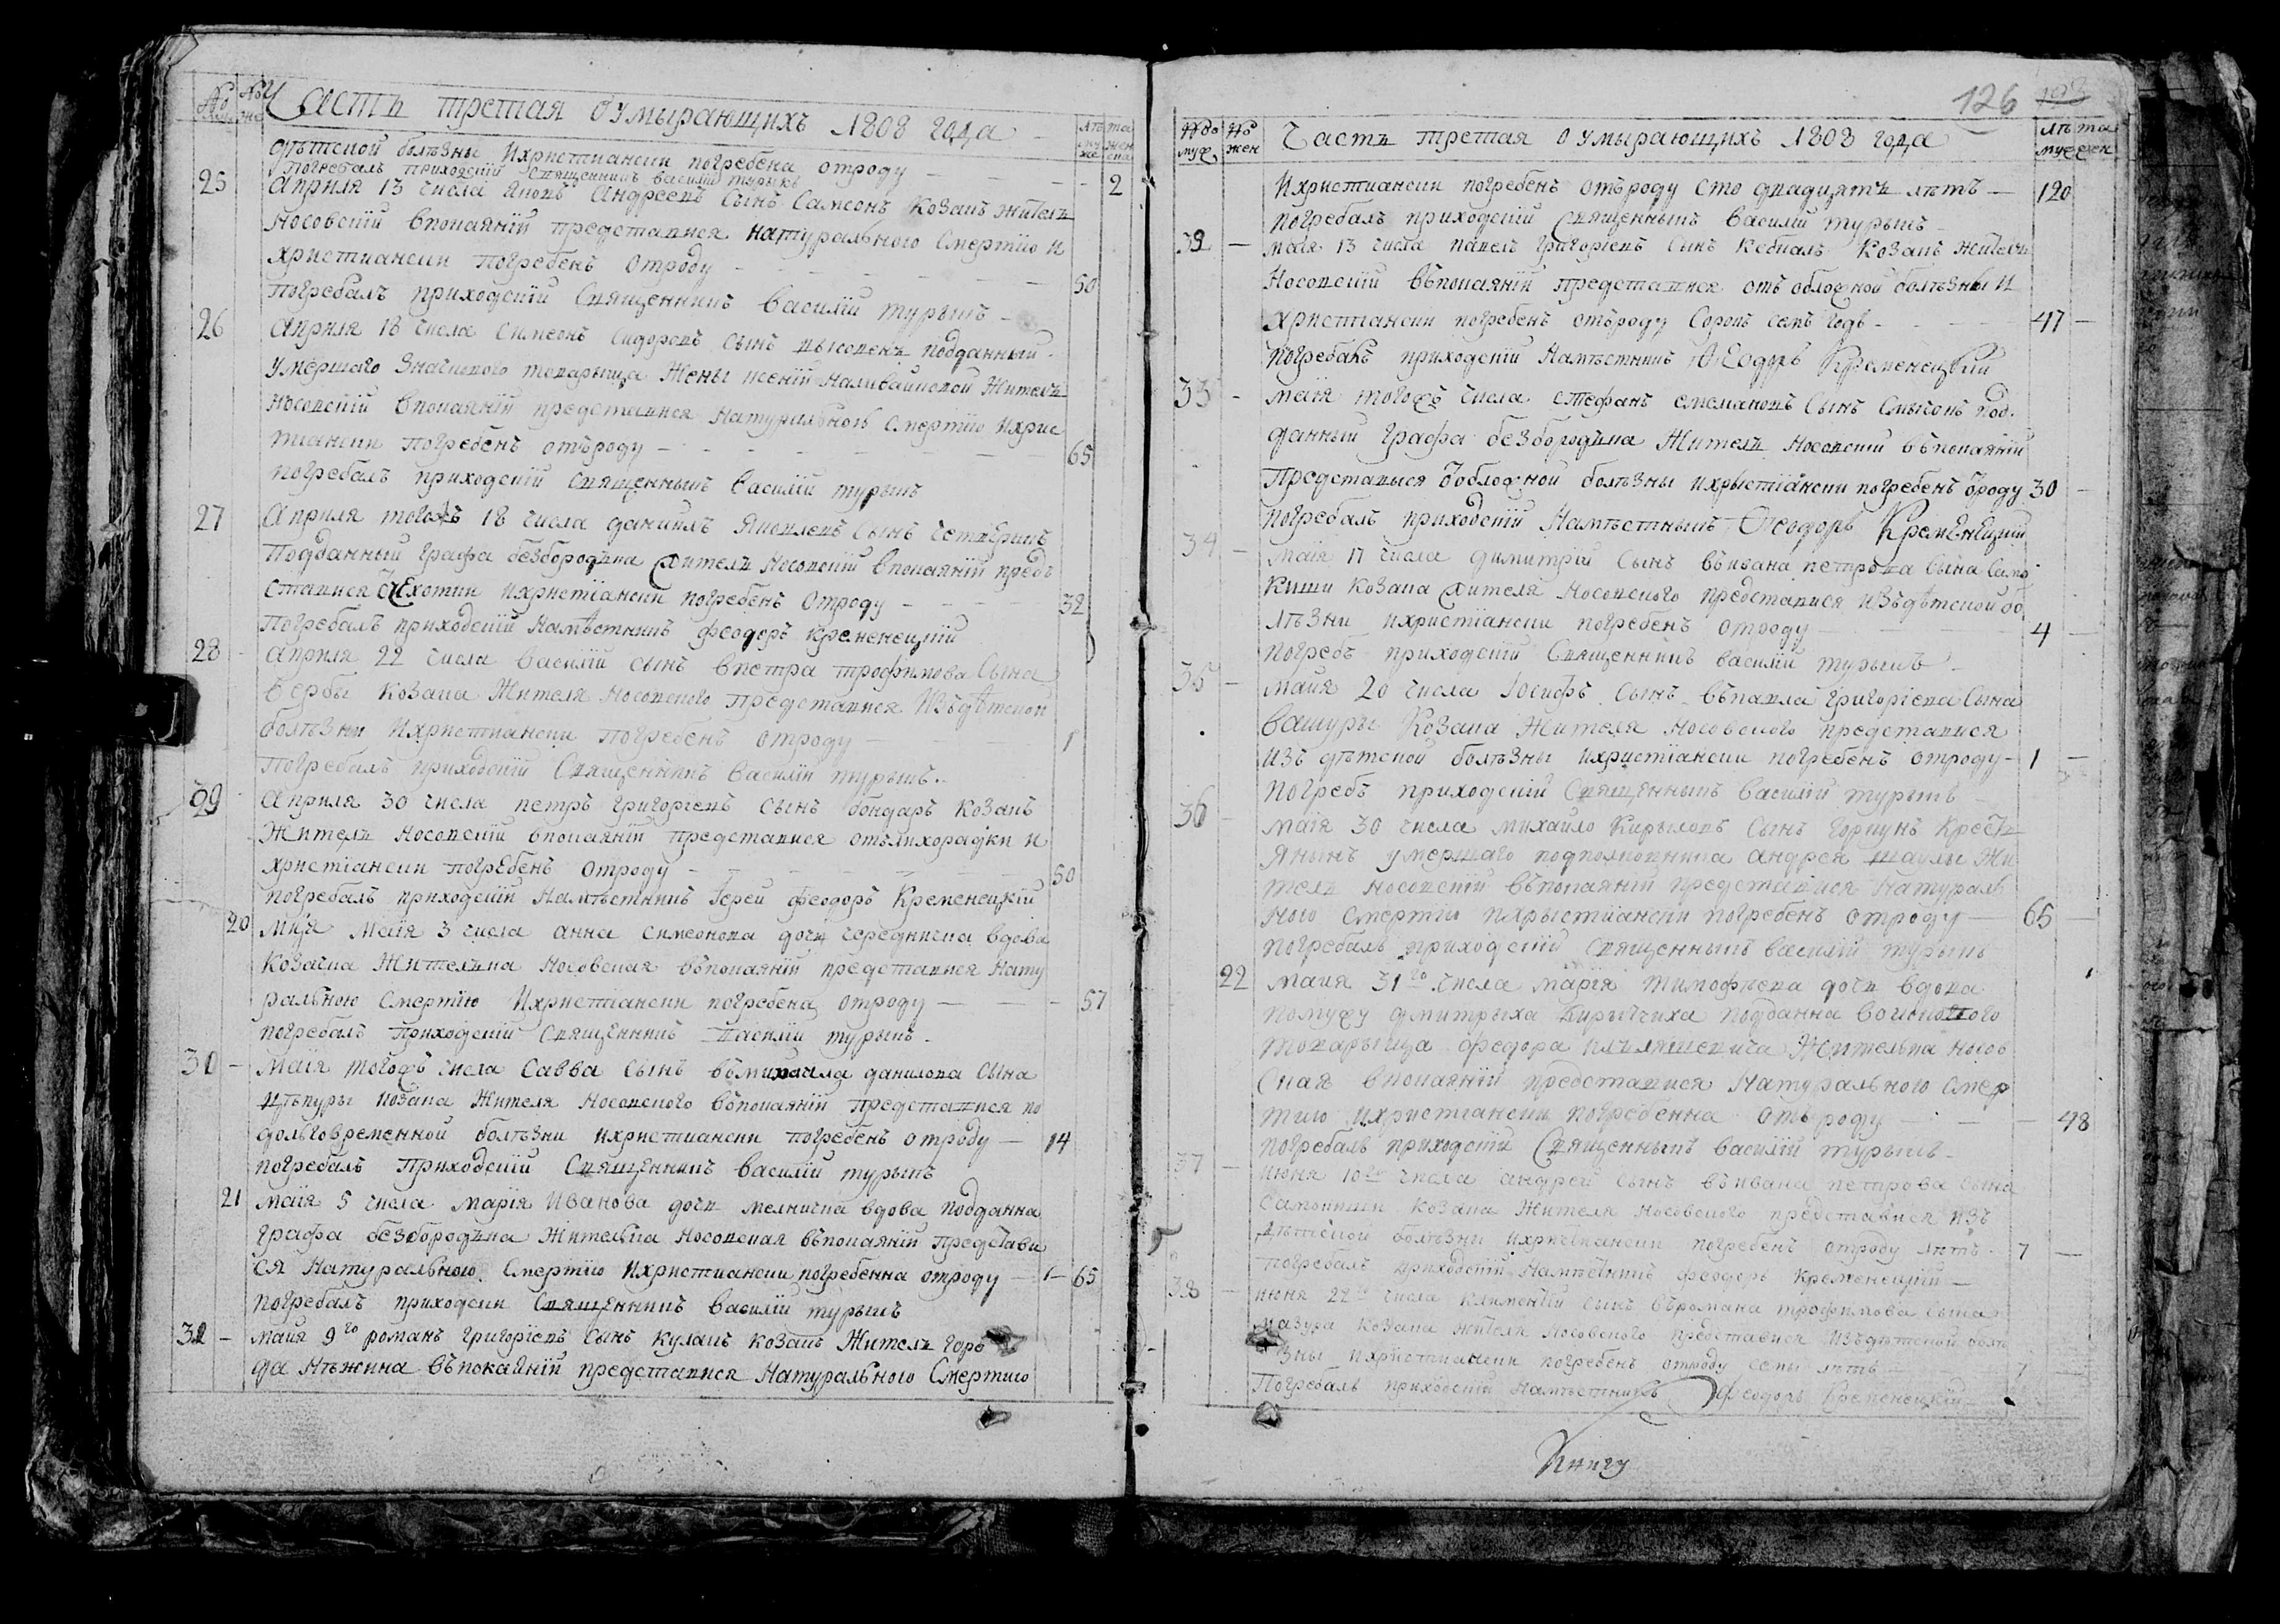 No муж No жен
Часть третая о умырающихъ 1808 года
лѣта муже женска
дѣтской болѣзны ихристиански погребена отроду — 2
погребалъ приходскій священникъ василій турыкъ
25 Априля 13 числа Яковъ Андреевъ сынъ Самсонъ козакъ житель
Носовскій впокаяніи представися натуральною смертію и
христиански погребенъ отроду — 50
погребалъ приходскій священникъ василій турыкъ
26 Априля 18 числа симеонъ сидоревъ сынъ подданный
умершого значкового товарыща жены ксеніи Наливайковой житель
Носовскій впокаяніи представися натуральною смертію ихрис
тиански погребенъ отъроду — 65
погребалъ приходскій священныкъ василій турыкъ
27 Априля тогожъ 18 числа даниилъ Яковлевъ сынъ
подданный графа безбородька житель Носовскій впокаяніи предъ
ставися ихристіански погребенъ отроду — 32
погребалъ приходскій намѣстникъ феодоръ кременецкій
28 Априля 22 числа василій сынъ впетра трофимова сына
вербы козака жителя носовского представися изъдѣтской
болѣзни ихристиански погребенъ отроду — 1
погребалъ приходскій священникъ василій турыкъ
29 Априля 30 числа петръ григоріевъ сынъ бондаръ козакъ
житель носовскій впокаяніи представися отълихорадки и
христіански погребенъ отроду — 50
погребалъ приходскій намѣстникъ Іерей феодоръ Кременецкій
20 Маія 3 числа анна симеонова дочь чередничка вдова
козачка жителька носовская въпокаяніи представися нату
ральною смертію ихристіански погребена отроду — 57
погребалъ приходскій священникъ василій турыкъ
30 — Маія тогожъ числа Савва сынъ вомихаила данилова сына
цѣпуры козака жителя носовского въпокаяніи представися по
дольговременной болѣзни ихристиански погребенъ отроду — 14
погребалъ приходскій священникъ василій турыкъ
21 маія 5 числа марія Иванова дочь мелничка вдова подданна
графа безбородька жителька носовская въпокаяніи представи
ся натуральною смертію ихристиански погребенна отроду — 65
погребалъ приходски священникъ василій турыкъ
31 — маия 9го романъ григоріевъ сынъ кулакъ козакъ житель горо
да Нѣжина въпокаяніи представися натуральною смертию
126
No муж No жен
Часть третая о умырающихъ 1808 года
лѣта муже жен
ихристиански погребенъ отъроду сто двадцять лѣтъ — 120
погребалъ приходскій священныкъ василій турыкъ
32 — маія 13 числа павелъ григоріевъ сынъ козакъ житель
Носовскій въпокаяніи представися отъ обложной болѣзны и
христіански погребенъ отъроду сорокъ семъ годъ — 47 —
погребалъ приходскій намѣстникъ Феодоръ Кременецкій
33 — маія тогожъ числа стефанъ сынъ под
данный графа безбородька житель носовскій въпокаяніи
представыся ообложной болѣзны ихрыстіански погребенъ ороду 30 —
погребалъ приходскій намѣстныкъ Феодоръ Кременецкій
34 — маія 17 числа димитрій сынъ въивана петрова сына само
киши козака жителя носовского представися изъдѣтской бо
лѣзни ихристіански погребенъ отроду — 4 —
погребъ приходскій священникъ василій турыкъ
35 — маия 20 числа Іосифъ сынъ въпавла григоріева сына
вашуры козака жителя носовского представися
изъ дѣтской болѣзны ихристіански погребенъ отроду — 1 —
погребъ приходскій священныкъ василій турыкъ
36 — маія 30 числа михайло кирыловъ сынъ крестъ
янынъ умершаго подполковника андрея шаулы жи
тель носовскій въпокаяніи представися натураль
ного смертію ихрыстиански погребенъ отроду — 65 —
погребалъ приходскій священныкъ василій турыкъ
22 маия 31го числа марія тимофѣева дочь вдова
помужу дмитрыха кирычиха подданна войскового
товарыща федора жителька носов
ская впокаяніи представися натуральною смер
тию ихристіански погребенна отъ роду — 48
погребалъ приходскій священныкъ василій турыкъ
37 — июня 10го числа андрей сынъ въивана петрова сына
самокиши козака жителя носовского представися изъ
дѣтской болѣзни ихристиански погребенъ отроду лѣтъ — 7 —
погребалъ приходскій намѣстникъ феодоръ кременецкій —
38 — июня 22го числа климентій сынъ въромана трофимова сына
мазура козака жителя носовского представися изъдѣтской болѣ
зны ихристиански погребенъ отроду семъ лѣтъ — 7 —
погребалъ приходскій намѣстникъ Феодоръ Кременецкій
Книгу